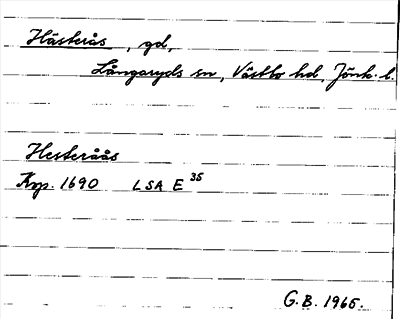 Hästerås, gd,
Långaryds sn, Västbo hd, Jönk. l.
Hesteråås
Krp. 1690 LSA E 35
G.B. 1965.